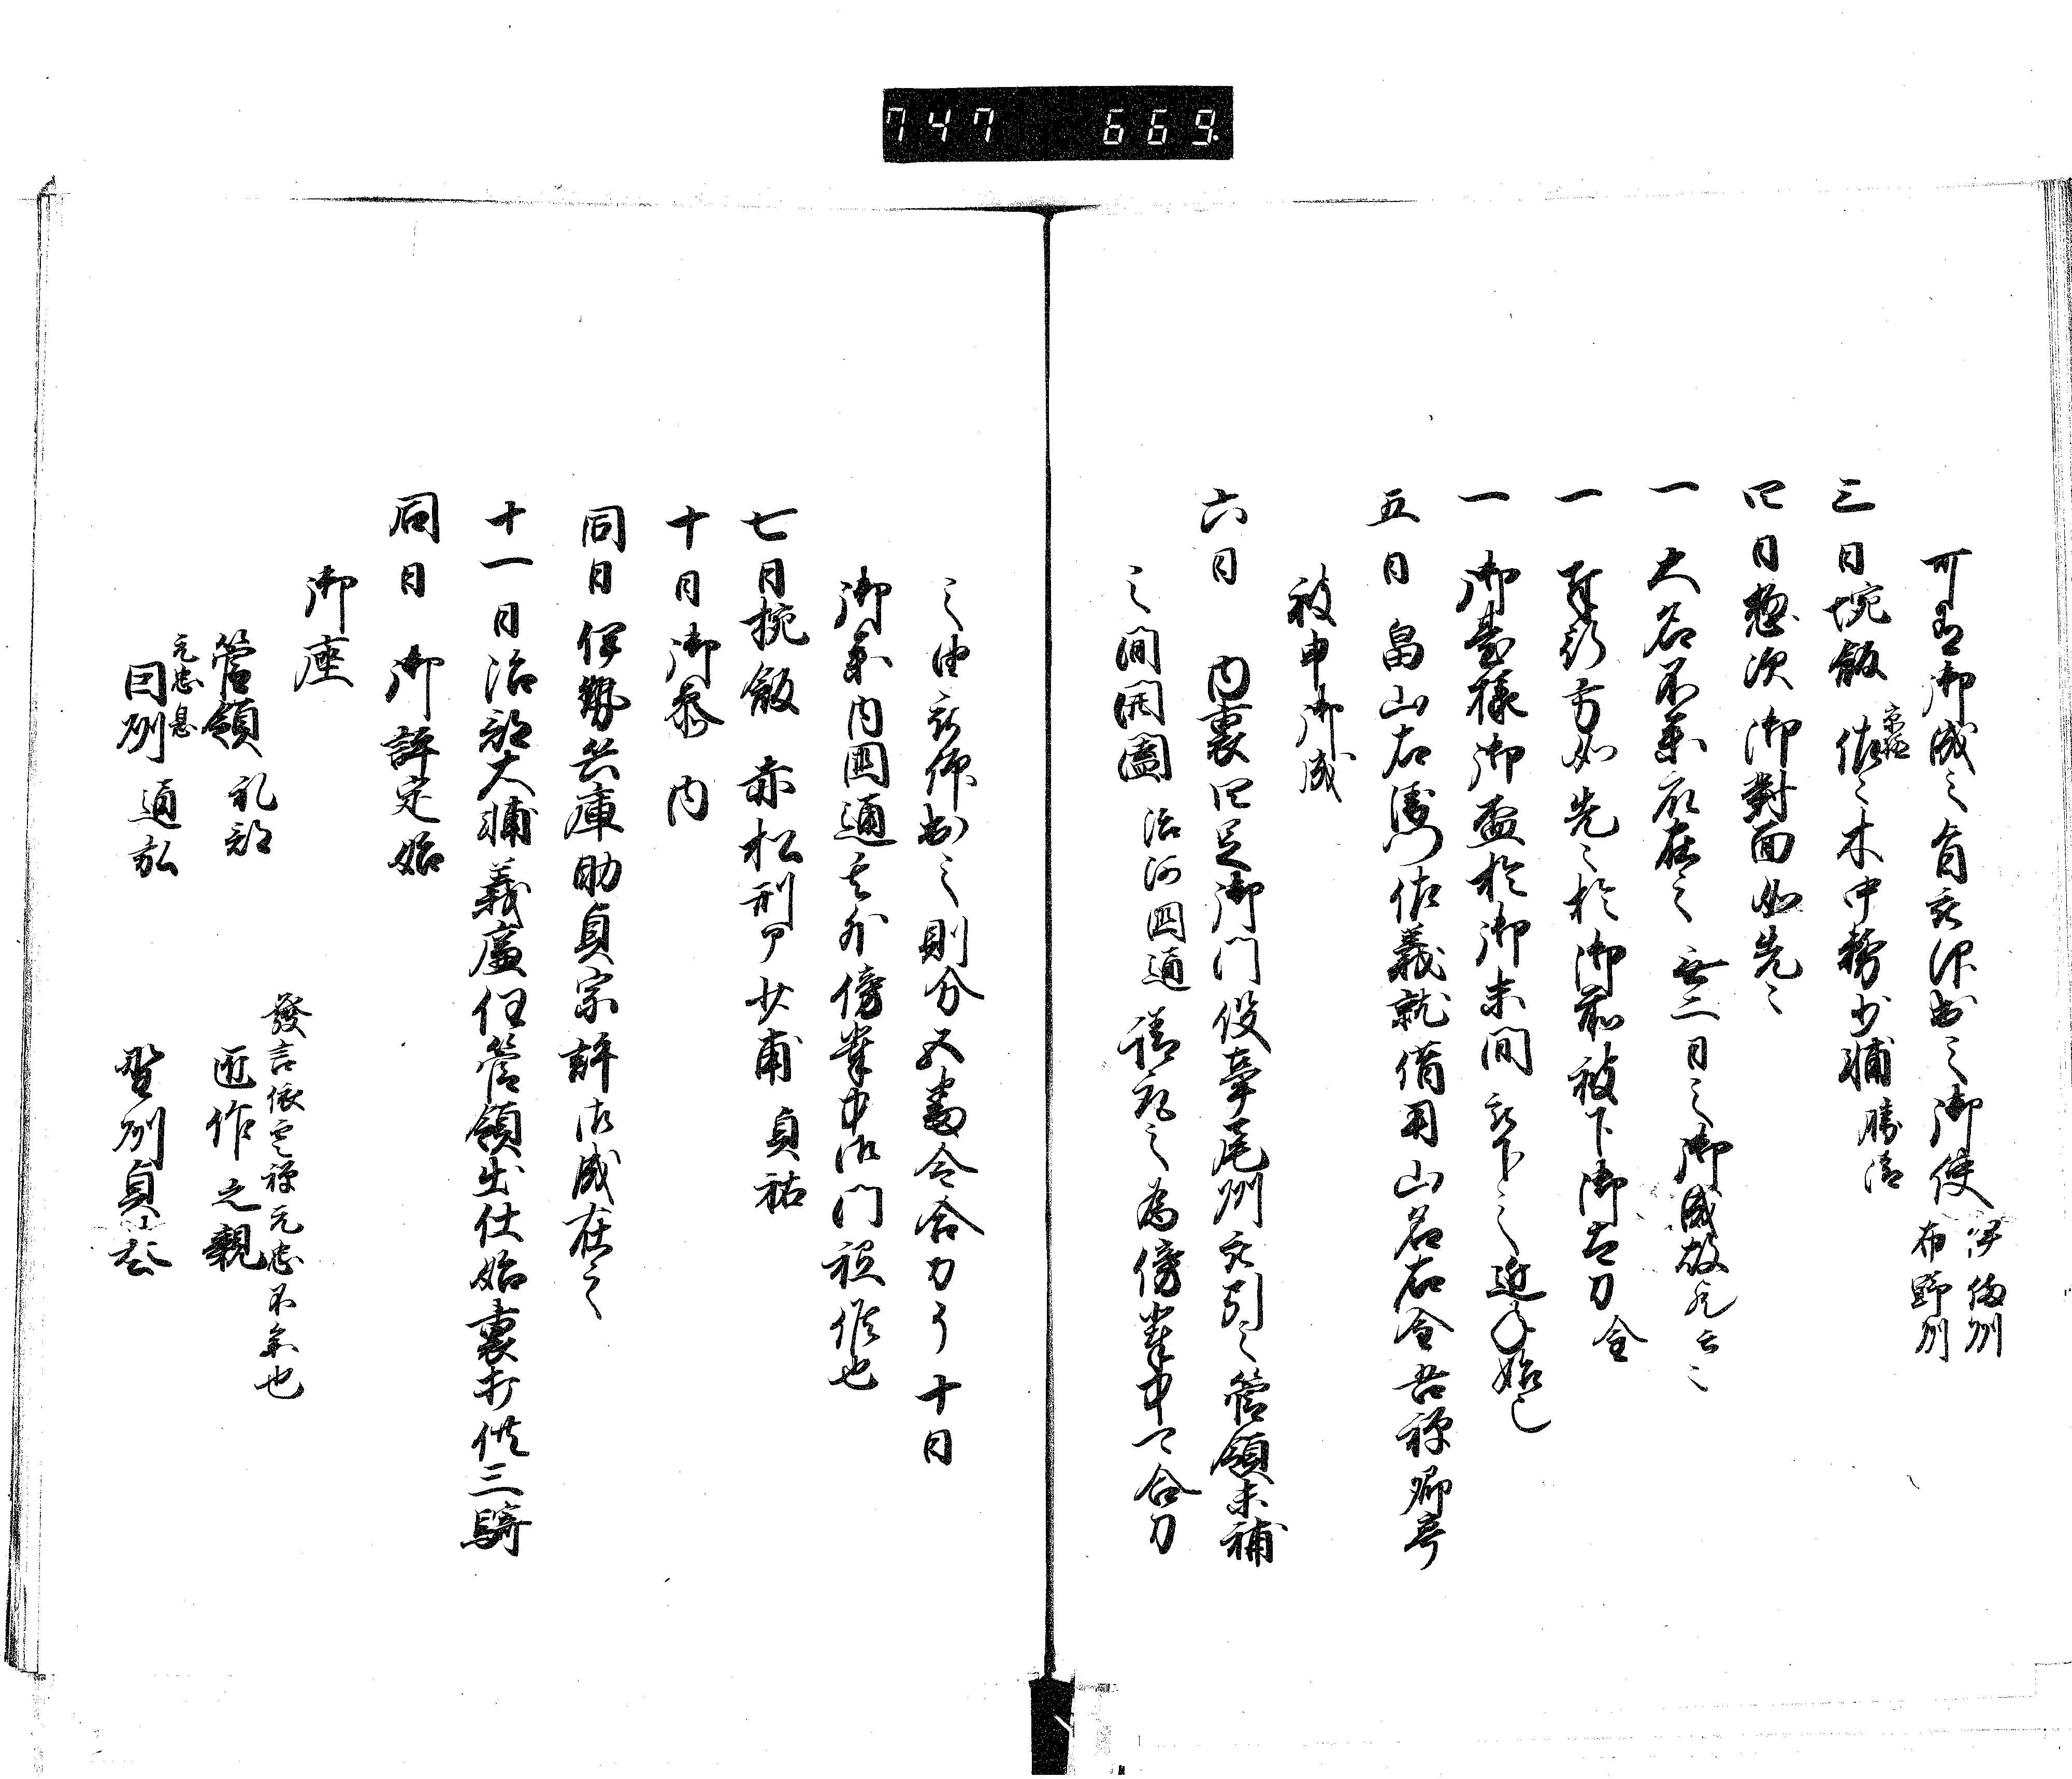 747 669
可有御成之旨被仰出之御使 伊備州 布野州
三日埦飯 京極 佐々木中務少輔 勝清
四日惣次御對面如先々
一 大名不参衆在之 去二日之御成故 云々
一 奉行方如先々於御前被下御太刀 金
一 御臺樣御盃於御末間被下之近年始也
五日畠山右衛門佐義就借用山名右金吾禅卿亭
被申御成
六日 内裏四足御門役畠尾州被引之管領未補
之間開闔 治河国通 諸 之為傍輩中可合力
之由被仰出之則分五番令合力了十日
御参内国通其外傍輩中御門役作也
七日埦飯 赤松刑ア少甫 貞祐
十日御参内
同日伊勢兵庫助貞宗許御成在之
十一日治部大輔義廉任管領出仕始裏打供三騎
同日 御評定始
御座
發言依 禅元忠不参也
管領 礼部 匠作之親
元忠息
因州 通弘 野州貞基